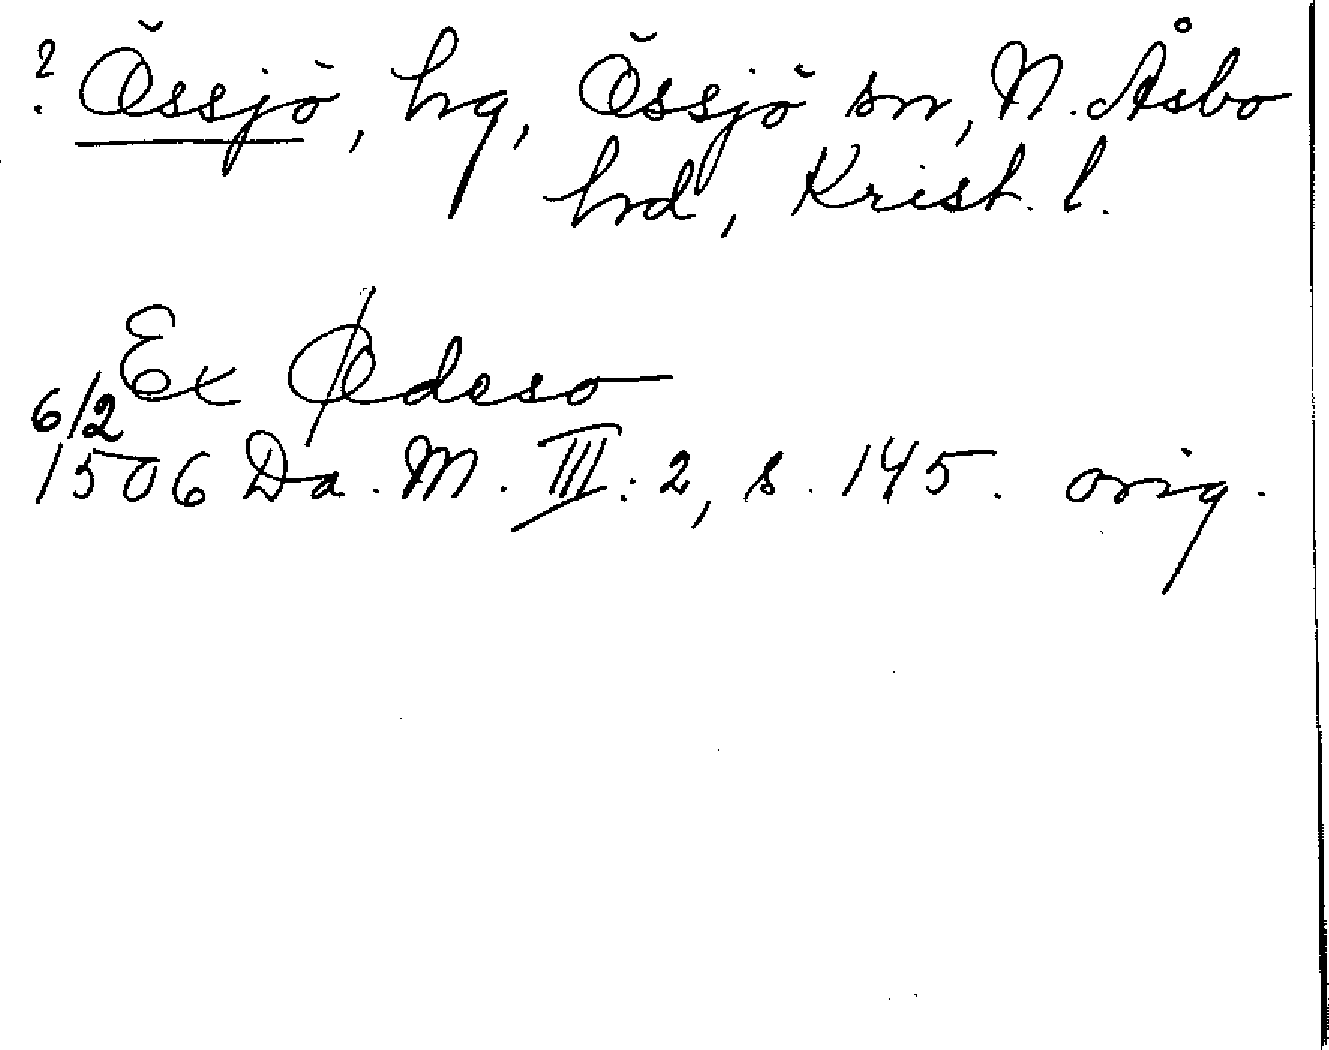 ? Össjö, hg, Össjö sn, N. Åsbo
hd, Krist. l.
Ex Ødeso
6/2
1506 Da. M. III: 2, s. 145. orig.